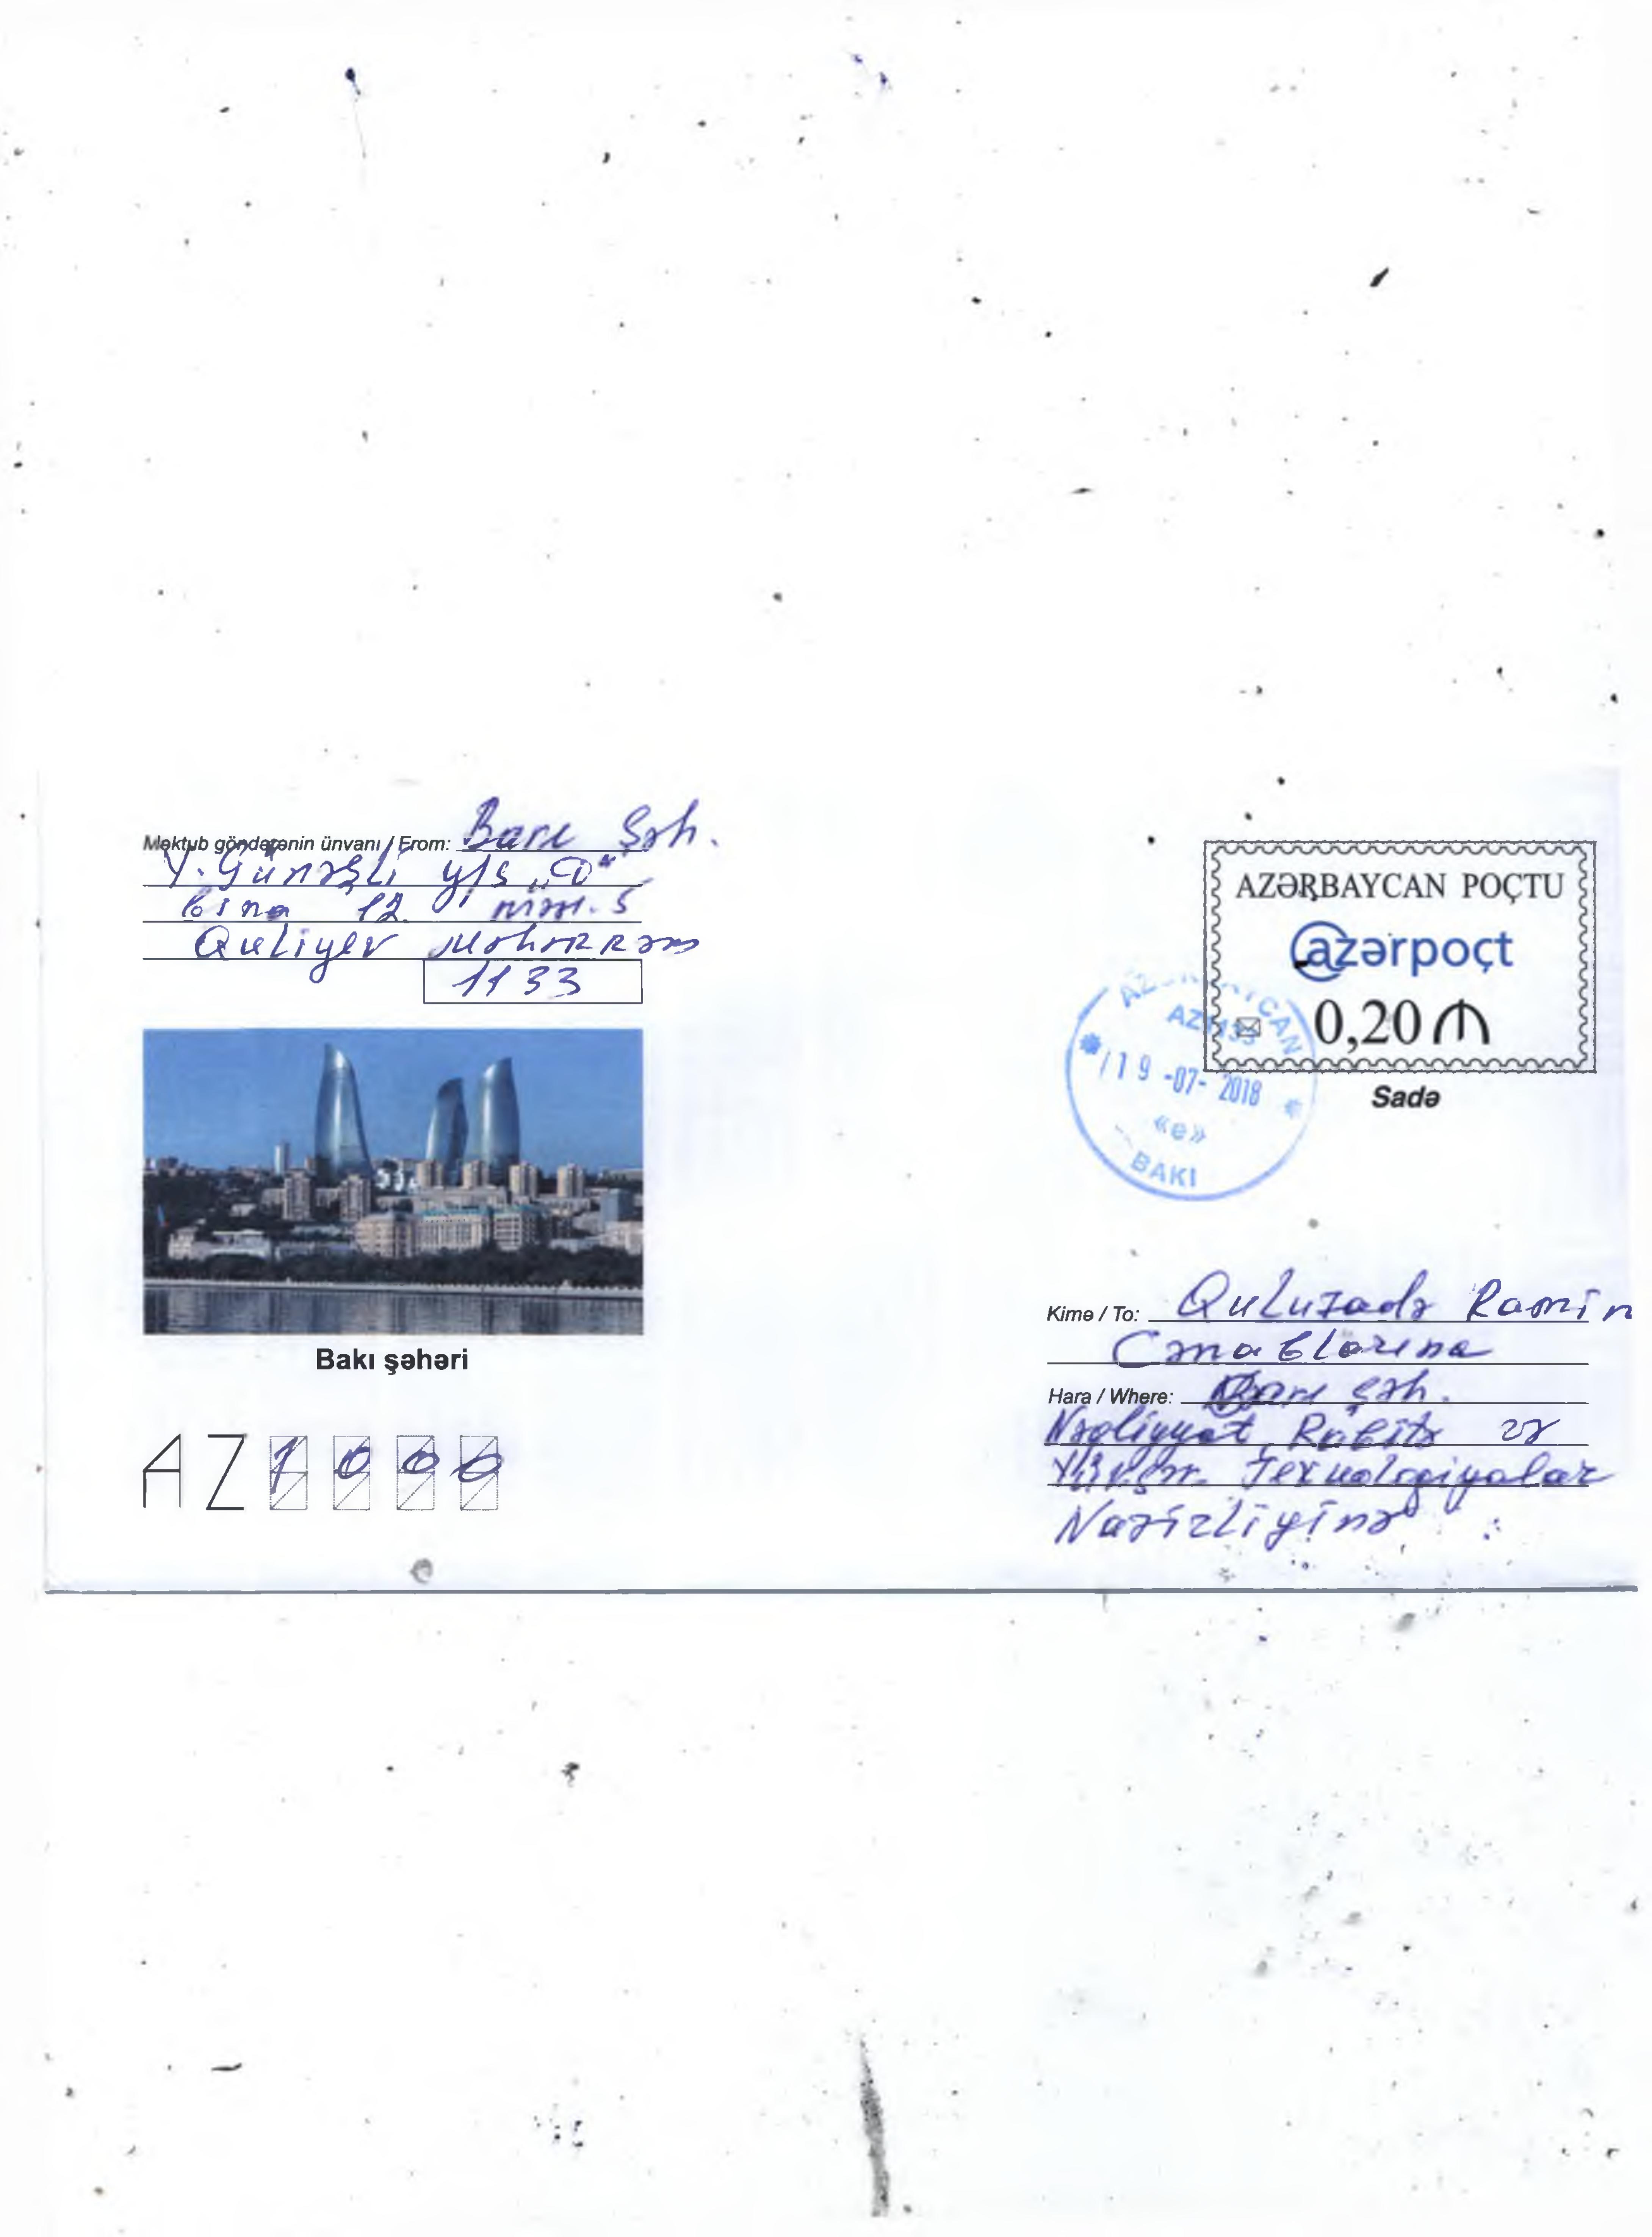 Məktub göndərənin ünvanı / From: Bakı Şəh.
Y. Günəşli y/s „D"
bina 12 mən. 5
Quliyev Məhərrəm
1133
Bakı şəhəri
AZ 1000
AZƏRBAYCAN POÇTU
azərpoçt
0,20 ₼
Sadə
AZƏRBAYCAN
AZ1133
19-07-2018
«e»
BAKI
Kimə / To: Quluzadə Ramin
Cənablarına
Hara / Where: Bakı şəh.
Nəqliyyat, Rabitə və
Texnologiyalar
Nazirliyinə